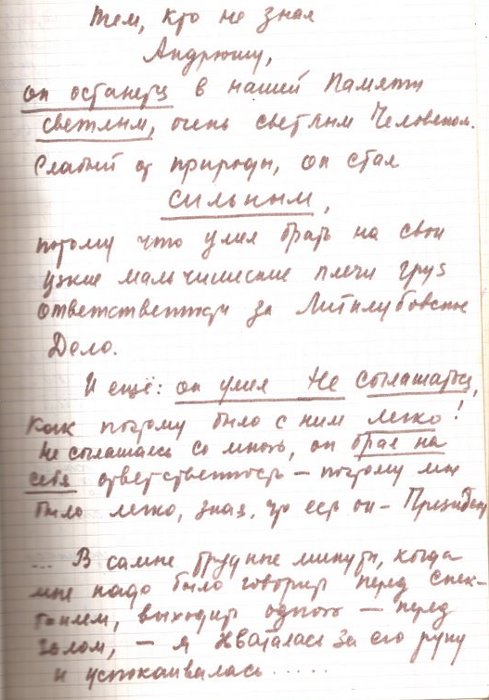 Тем, кто не знал
Андрюшу,
он останется в нашей Памяти
светлым, очень светлым Человеком.
Слабый от природы, он стал
сильным,
потому что умел брать на свои
узкие мальчишеские плечи груз
ответственности за Литклубовское
Дело.
И ещё: он умел не соглашаться,
как поэтому было с ним легко!
Не соглашаясь со мною, он брал на
себя ответственность – поэтому мне
было легко, зная, что есть он – Президент
... В самые трудные минуты, когда
мне надо было говорить перед спек-
таклем, выходить одной – перед
залом, – я хваталась за его руку
и успокаивалась......